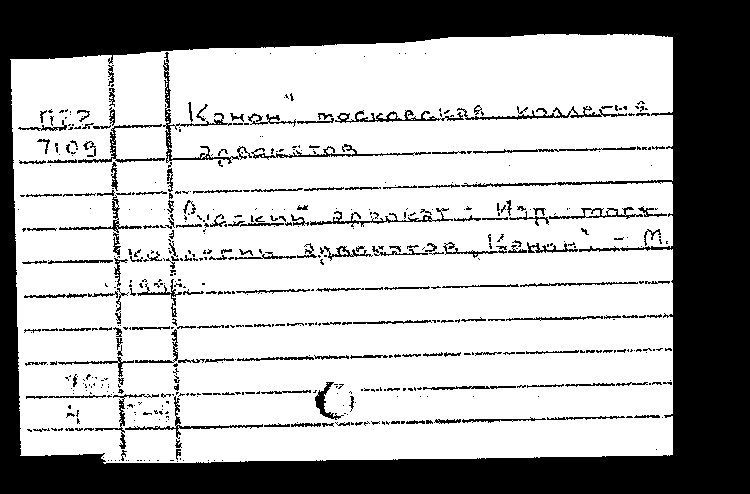 П22
7109
„Канон", московская коллегия
адвокатов
Русский адвокат: Изд. моск.
коллегии адвокатов „Канон". - М.
4